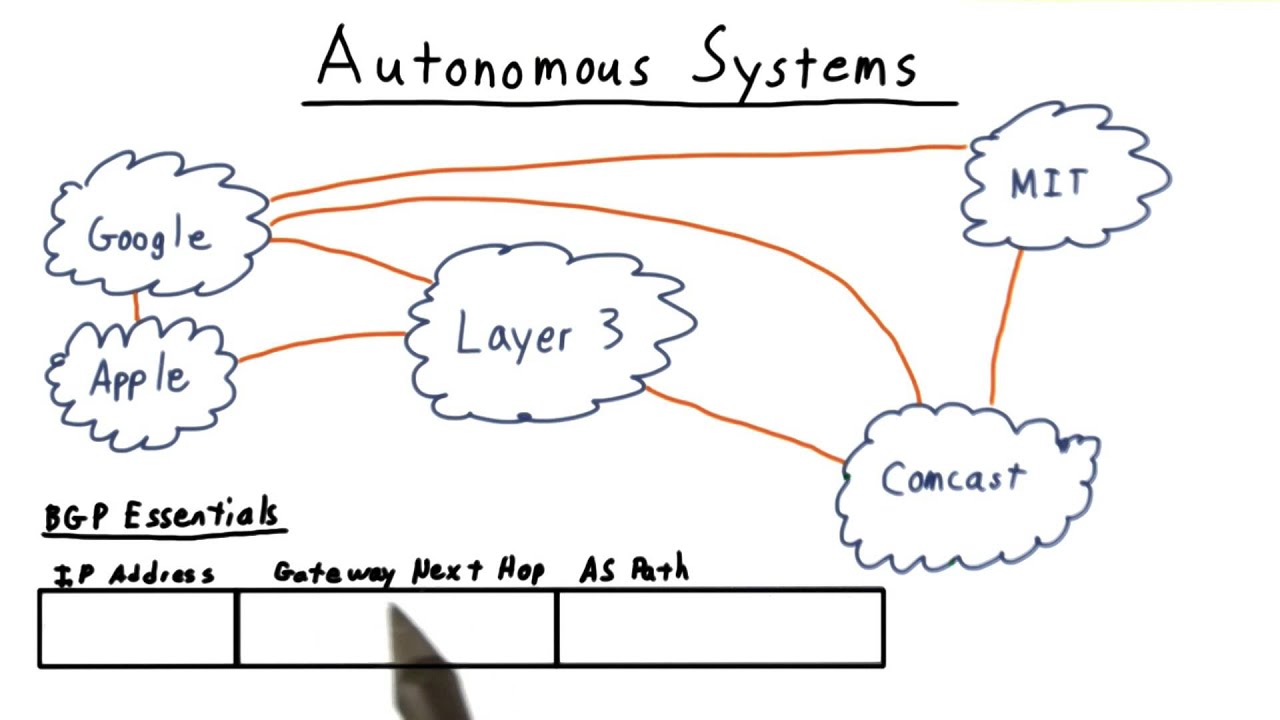 Autonomous Systems
MIT
Google
Layer 3
Apple
Comcast
BGP Essentials
IP Address Gateway Next Hop AS Path